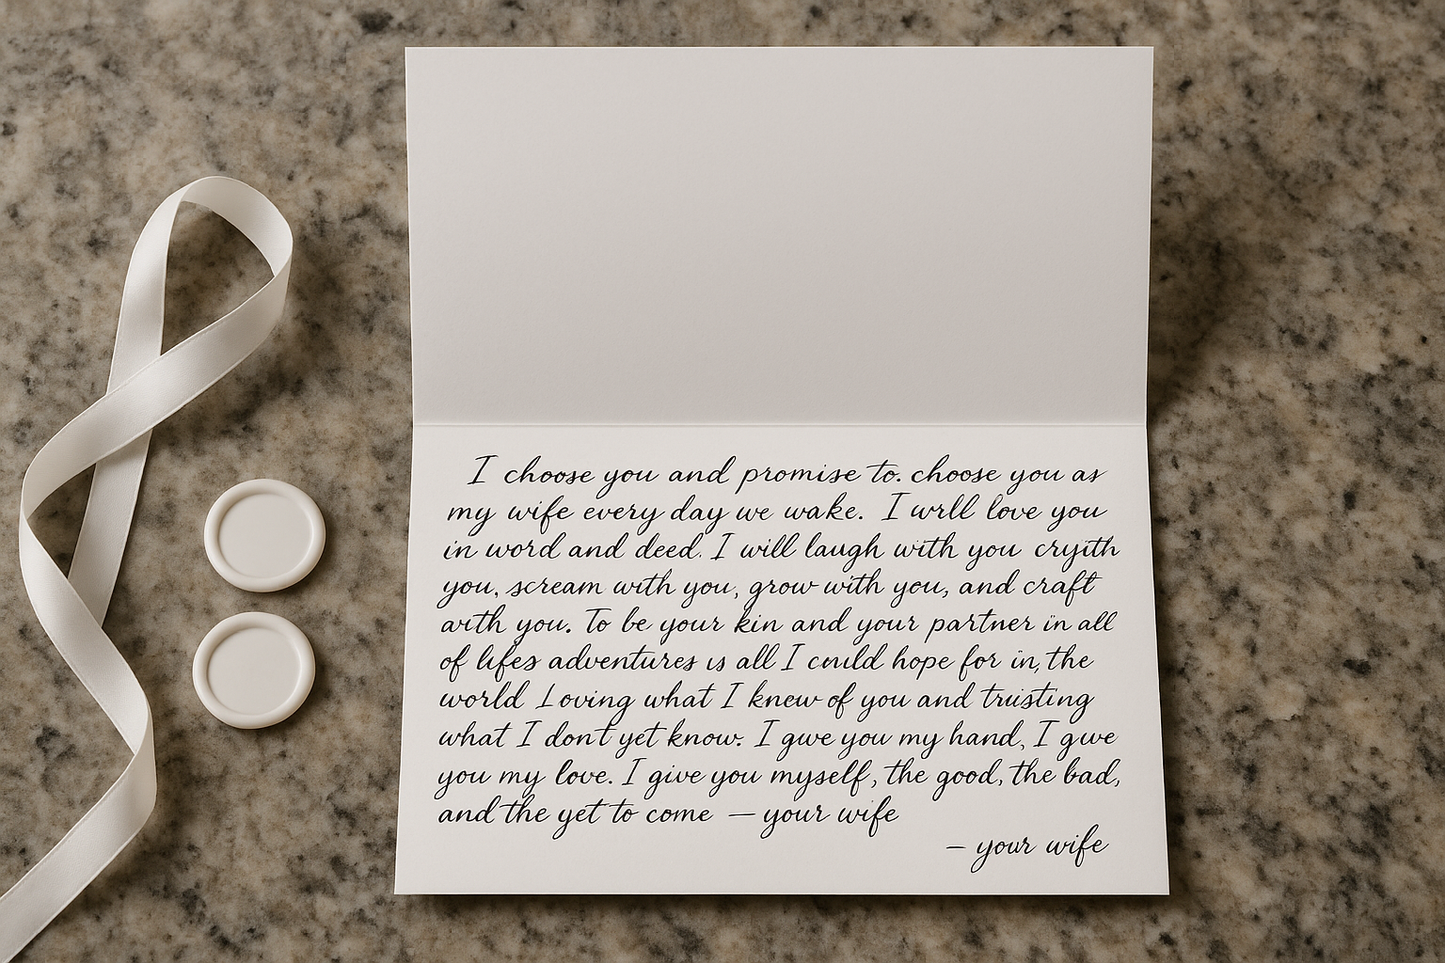 I choose you and promise to. choose you as
my wife every day we wake. I wrll love you
in word and deed. I will laugh with you cryith
you, scream with you, grow with you, and craft
with you. To be your kin and your partner in all
of lifes adventures is all I could hope for in, the
world Loving what I knew of you and trusting
what I dont yet know. I gwe you my hand, I gwe
you my love. I give you myself, the good, the bad,
and the yet to come – your wife
– your wife